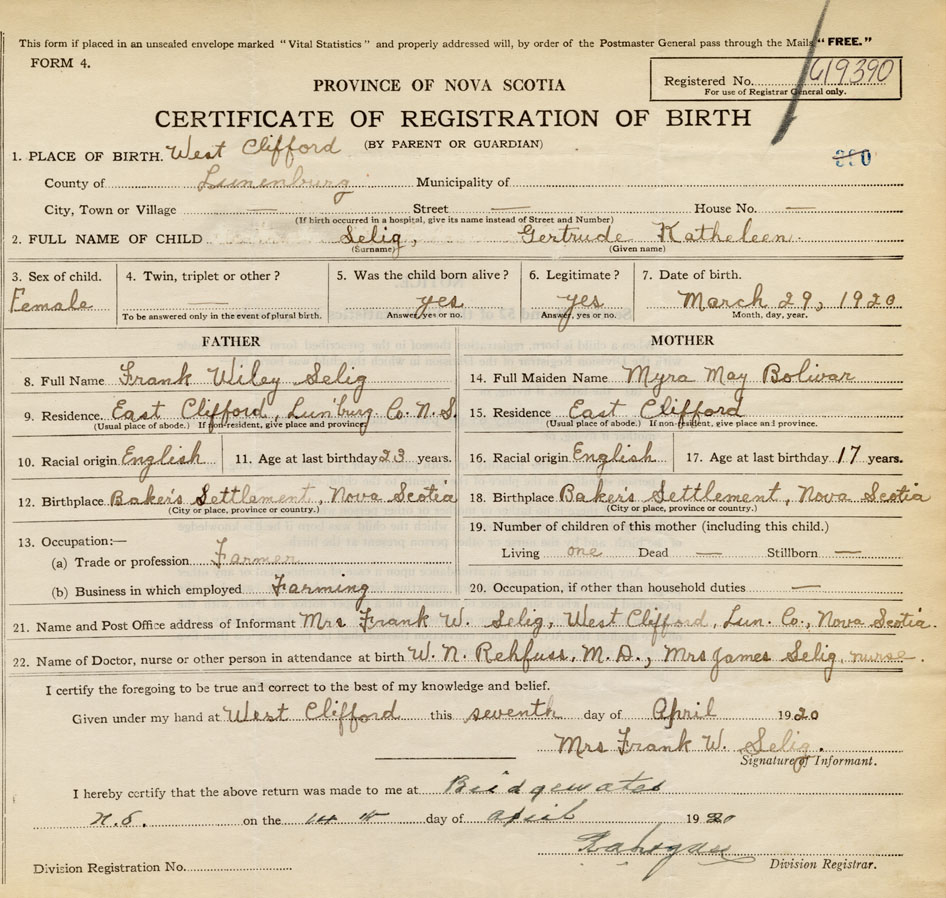 This form if placed in an unsealed envelope marked "Vital Statistics" and properly addressed will, by order of the Postmaster General pass through the Mails "FREE."
FORM 4.
PROVINCE OF NOVA SCOTIA
Registered No. 619390
For use of Registrar General only.
CERTIFICATE OF REGISTRATION OF BIRTH
(BY PARENT OR GUARDIAN)
1. PLACE OF BIRTH. West Clifford
County of Lunenburg Municipality of
City, Town or Village — Street — House No. —
(If birth occurred in a hospital, give its name instead of Street and Number)
2. FULL NAME OF CHILD Selig, Gertrude Katheleen
(Surname) (Given name)
3. Sex of child. 4. Twin, triplet or other? 5. Was the child born alive? 6. Legitimate? 7. Date of birth.
Female — yes yes March 29, 1920
To be answered only in the event of plural birth. Answer, yes or no. Answer, yes or no. Month, day, year.
FATHER MOTHER
8. Full Name Frank Wiley Selig 14. Full Maiden Name Myra May Bolivar
9. Residence. East Clifford, Lun'burg Co. N.S. 15. Residence East Clifford
(Usual place of abode.) If non-resident, give place and province. (Usual place of abode.) If non-resident, give place and province.
10. Racial origin English 11. Age at last birthday 23 years. 16. Racial origin English 17. Age at last birthday 17 years.
12. Birthplace Baker's Settlement, Nova Scotia 18. Birthplace Baker's Settlement, Nova Scotia
(City or place, province or country.) (City or place, province or country.)
19. Number of children of this mother (including this child.)
13. Occupation:—
Living one Dead — Stillborn —
(a) Trade or profession Farmer
(b) Business in which employed Farming 20. Occupation, if other than household duties —
21. Name and Post Office address of Informant Mrs Frank W. Selig, West Clifford, Lun. Co., Nova Scotia.
22. Name of Doctor, nurse or other person in attendance at birth W. N. Rehfuss, M.D., Mrs James Selig, nurse.
I certify the foregoing to be true and correct to the best of my knowledge and belief.
Given under my hand at West Clifford this seventh day of April 1920
Mrs Frank W. Selig.
Signature of Informant.
I hereby certify that the above return was made to me at Bridgewater
N.S. on the 14th day of April 1920
Division Registration No. Division Registrar.